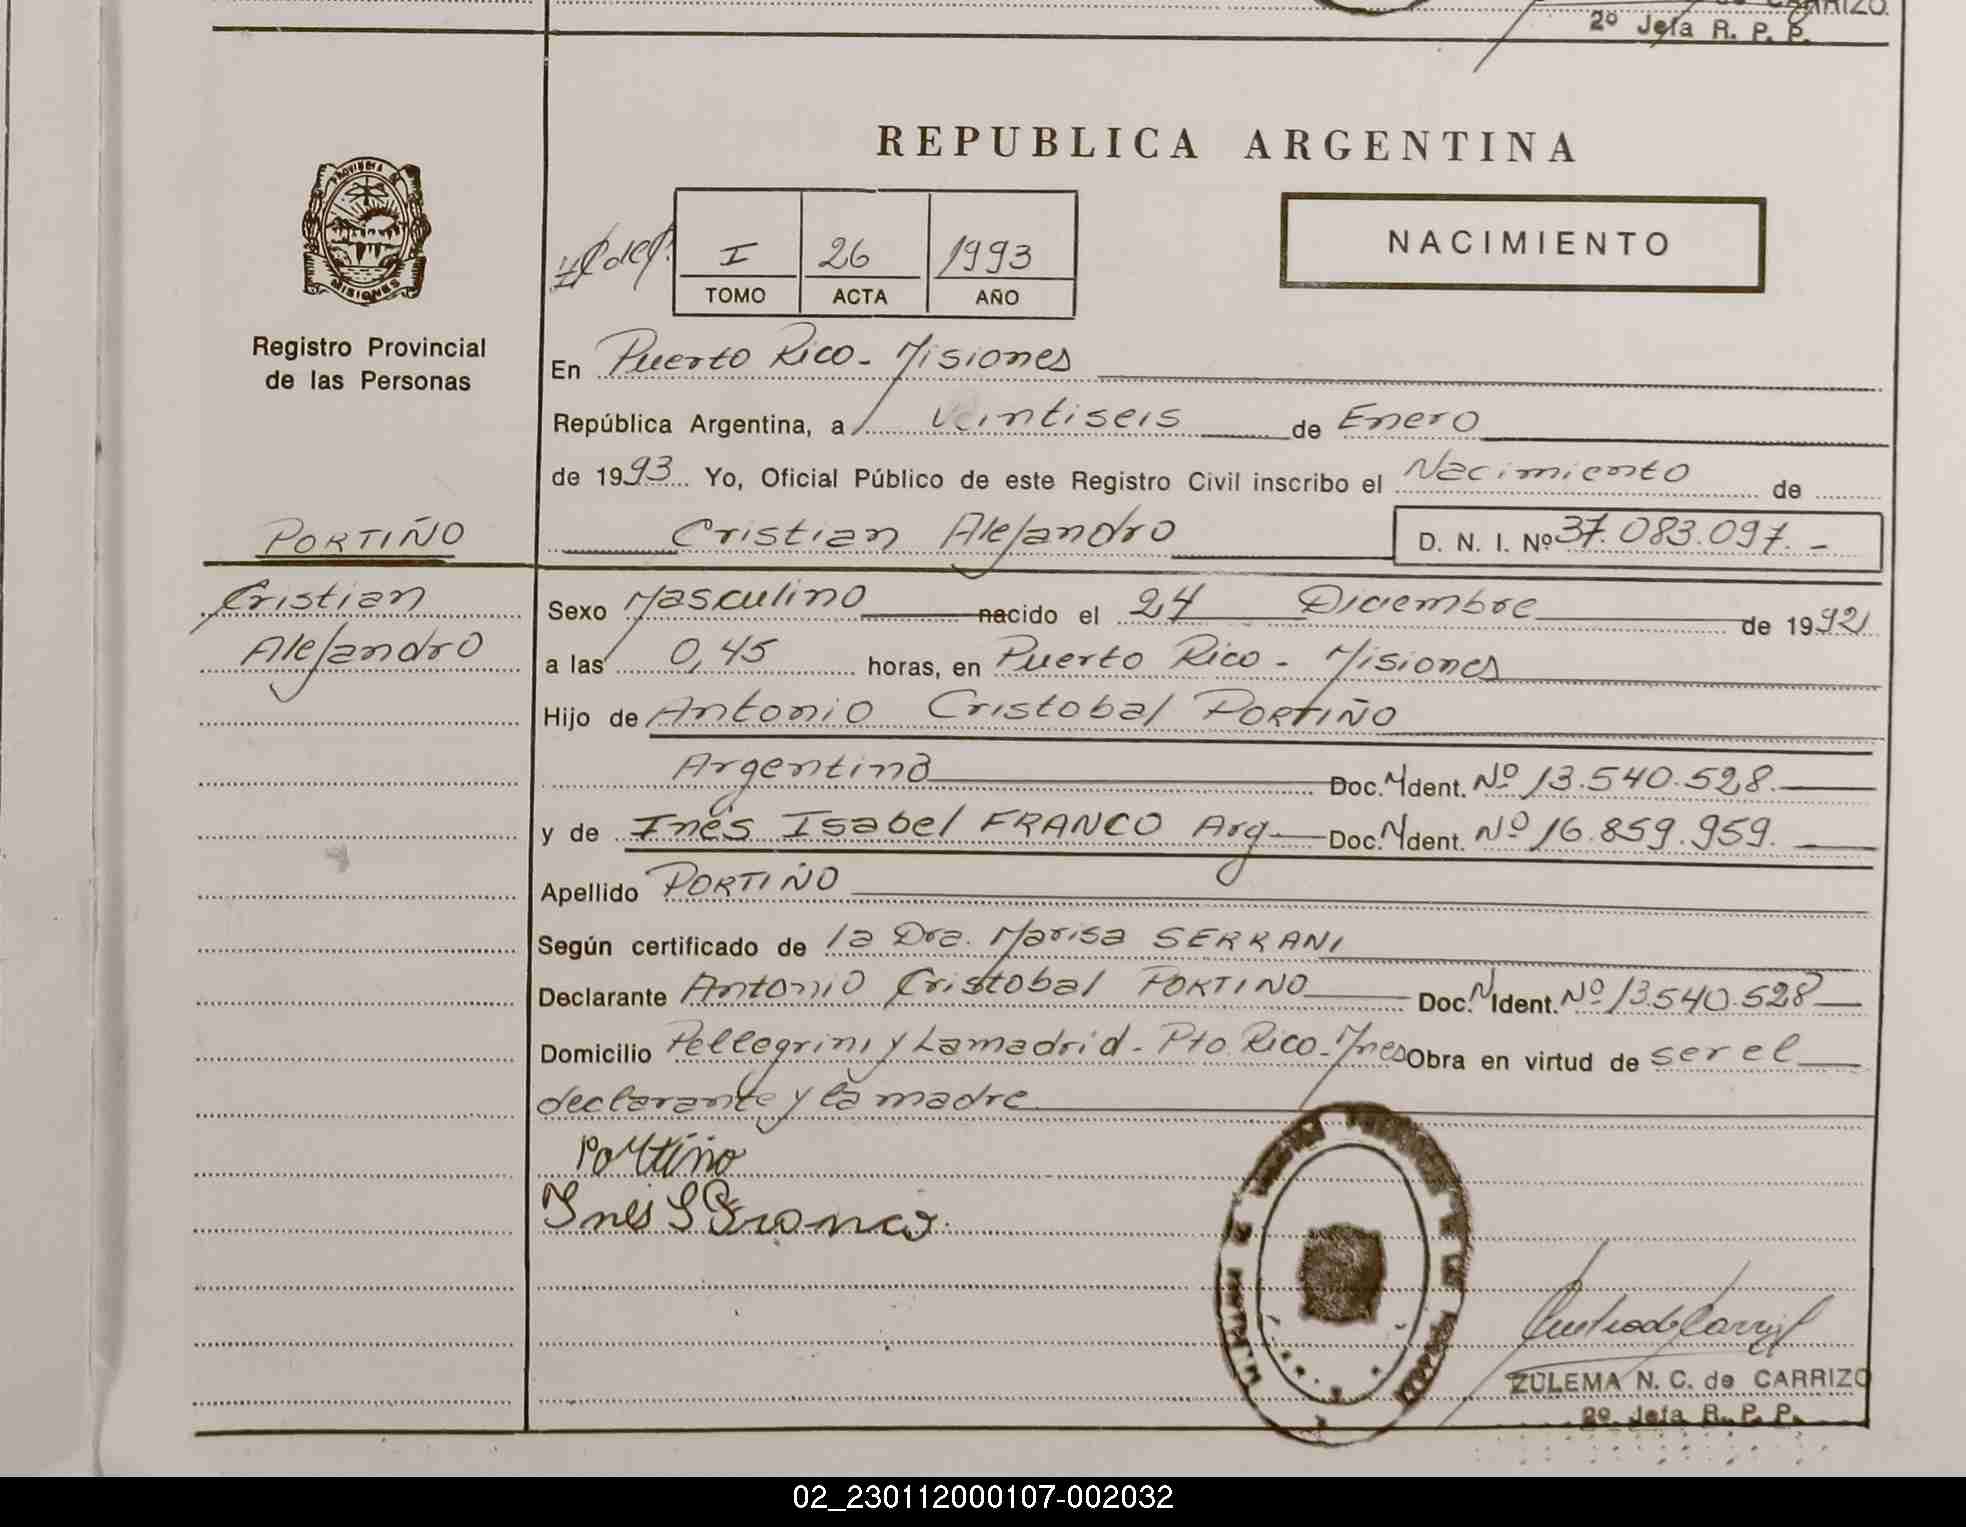 2º Jefa R. P. P.
REPUBLICA ARGENTINA
PROVINCIA DE
MISIONES
Registro Provincial
de las Personas
I 26 1993
TOMO ACTA AÑO
NACIMIENTO
En Puerto Rico - Misiones
República Argentina, a veintiseis de Enero
de 1993 Yo, Oficial Público de este Registro Civil inscribo el Nacimiento de
PORTIÑO
Cristian Alejandro D. N. I. Nº 37.083.097.-
Cristian
Alejandro
Sexo Masculino nacido el 24 Diciembre de 1992
a las 0,45 horas, en Puerto Rico - Misiones
Hijo de Antonio Cristobal PORTIÑO
Argentino Doc. N Ident. Nº 13.540.528.
y de Inés Isabel FRANCO Arg Doc. N Ident. Nº 16.859.959.
Apellido PORTIÑO
Según certificado de la Dra. Marisa SERRANI
Declarante Antonio Cristobal PORTINO Doc. N Ident. Nº 13.540.528
Domicilio Pellegrini y Lamadrid - Pto. Rico - Mnes Obra en virtud de ser el
declarante y la madre
Portiño
Inés I Franco.
ZULEMA N. C. de CARRIZO
2º Jefa R. P. P.
02_230112000107-002032